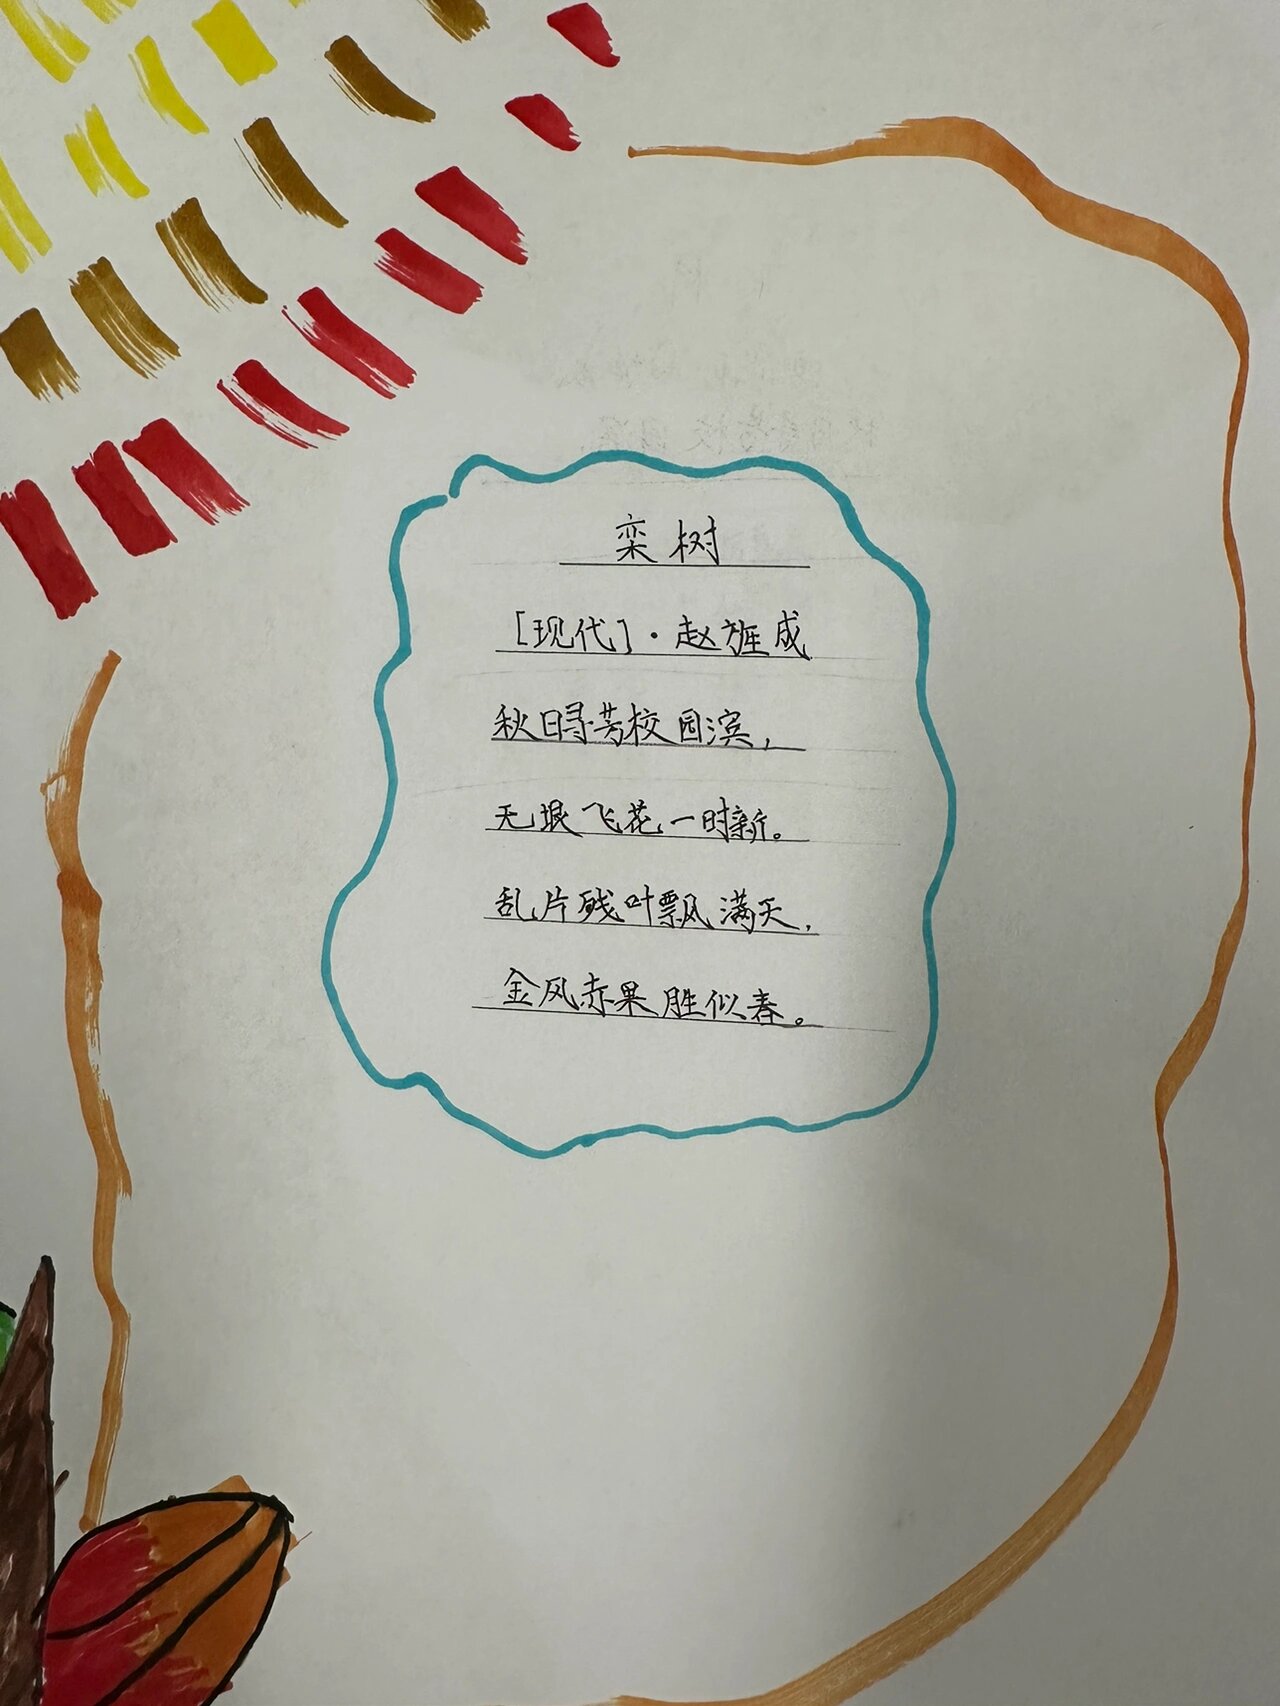 栾树
[现代]·赵旌成
秋日寻芳校园滨，
无垠飞花一时新。
乱片残叶飘满天，
金风赤果胜似春。